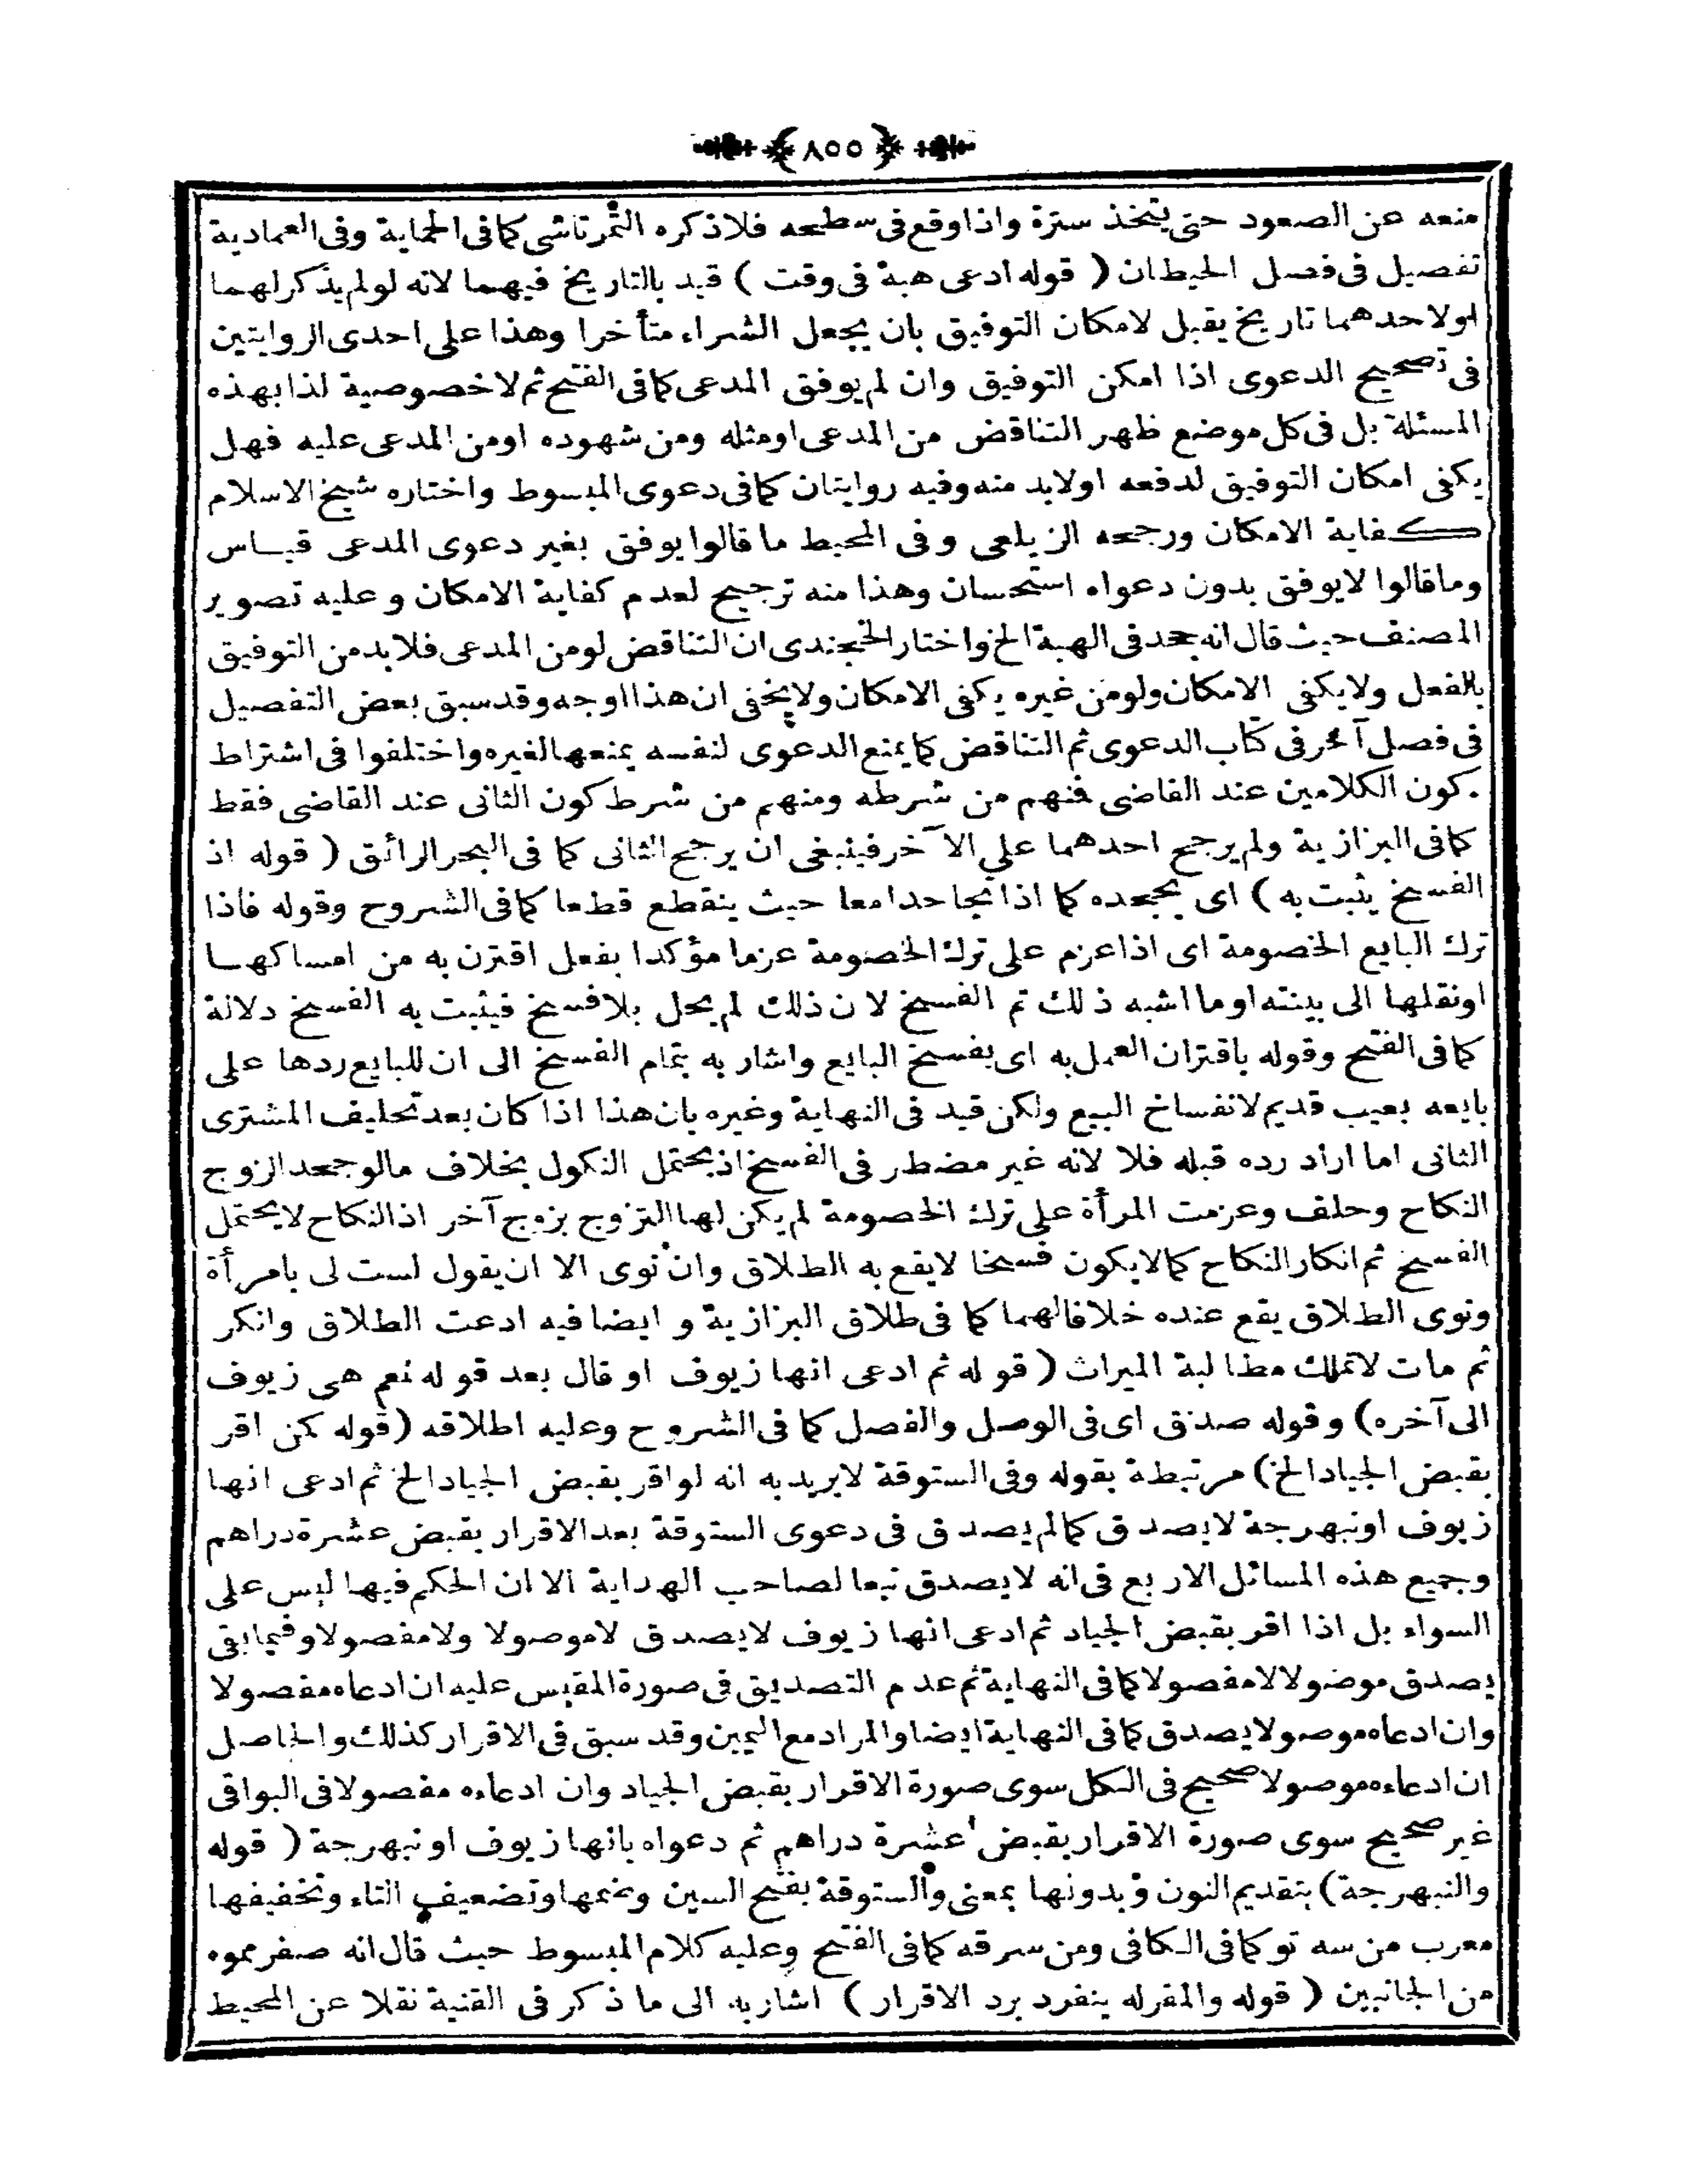 ٨٥٥
منعه عن الصعود حتى يتخذ سترة واذا وقع فى سطحه فلا ذكره التمرتاشى كما فى الحماية وفى العمادية
تفصيل فى فصل الحيطان ( قوله ادعى هبة فى وقت ) قيد بالتاريخ فيهما لانه لو لم يذكر لهما
اولاحدهما تاريخ يقبل لامكان التوفيق بان يجعل الشراء متأخرا وهذا على احدى الروايتين
فى تصحيح الدعوى اذا امكن التوفيق وان لم يوفق المدعى كما فى الفتح ثم لا خصوصية لذا بهذه
المسئلة بل فى كل موضع ظهر التناقض من المدعى اومثله ومن شهوده اومن المدعى عليه فهل
يكفى امكان التوفيق لدفعه اولابد منه وفيه روايتان كما فى دعوى المبسوط واختاره شيخ الاسلام
كفاية الامكان ورجحه الزيلعى وفى المحيط ما قالوا يوفق بغير دعوى المدعى قياس
وما قالوا لا يوفق بدون دعواه استحسان وهذا منه ترجيح لعدم كفاية الامكان وعليه تصوير
المصنف حيث قال انه جحد فى الهبة الخ واختار الخجندى ان التناقض لومن المدعى فلابد من التوفيق
بالفعل ولا يكفى الامكان ولومن غيره يكفى الامكان ولا يخفى ان هذا اوجه وقد سبق بعض التفصيل
فى فصل آخر فى كتاب الدعوى ثم التناقض كما يمنع الدعوى لنفسه يمنعها لغيره واختلفوا فى اشتراط
كون الكلامين عند القاضى فمنهم من شرطه ومنهم من شرط كون الثانى عند القاضى فقط
كما فى البزازية ولم يرجح احدهما على الآخر فينبغى ان يرجح الثانى كما فى البحر الرائق ( قوله اذ
الفسخ يثبت به ) اى بجحده كما اذا تجاحدا معا حيث ينقطع قطعا كما فى الشروح وقوله فاذا
ترك البايع الخصومة اى اذا عزم على ترك الخصومة عزما مؤكدا بفعل اقترن به من امساكها
اونقلها الى بيته اوما اشبه ذلك تم الفسخ لان ذلك لم يحل بلا فسخ فيثبت به الفسخ دلالة
كما فى الفتح وقوله باقتران العمل به اى بفسخ البايع واشار به بتمام الفسخ الى ان للبايع ردها على
بايعه بعيب قديم لانفساخ البيع ولكن قيد فى النهاية وغيره بان هذا اذا كان بعد تحليف المشترى
الثانى اما اراد رده قبله فلا لانه غير مضطر فى الفسخ اذ يحتمل النكول بخلاف مالو جحد الزوج
النكاح وحلف وعزمت المرأة على ترك الخصومة لم يكن لها التزوج بزوج آخر اذ النكاح لا يحتمل
الفسخ ثم انكار النكاح كما لا يكون فسخا لا يقع به الطلاق وان نوى الا ان يقول لست لى بامرأة
ونوى الطلاق يقع عنده خلافا لهما كما فى طلاق البزازية و ايضا فيه ادعت الطلاق وانكر
ثم مات لا تملك مطالبة الميراث ( قوله ثم ادعى انها زيوف او قال بعد قوله نعم هى زيوف
الى آخره) وقوله صدق اى فى الوصل والفصل كما فى الشروح وعليه اطلاقه (قوله كمن اقر
بقبض الجياد الخ) مرتبطة بقوله وفى الستوقة لا يريد به انه لواقر بقبض الجياد الخ ثم ادعى انها
زيوف اونبهرجة لا يصدق كما لم يصدق فى دعوى الستوقة بعد الاقرار بقبض عشرة دراهم
وجميع هذه المسائل الاربع فى انه لا يصدق تبعا لصاحب الهداية الا ان الحكم فيها ليس على
السواء بل اذا اقر بقبض الجياد ثم ادعى انها زيوف لا يصدق لا موصولا ولا مفصولا وفيما بقى
يصدق موضولا لا مفصولا كما فى النهاية ثم عدم التصديق فى صورة المقيس عليه ان ادعاه مفصولا
وان ادعاه موصولا يصدق كما فى النهاية ايضا والمراد مع اليمين وقد سبق فى الاقرار كذلك والحاصل
ان ادعاءه موصولا صحيح فى الكل سوى صورة الاقرار بقبض الجياد وان ادعاءه مفصولا فى البواقى
غير صحيح سوى صورة الاقرار بقبض عشرة دراهم ثم دعواه بانها زيوف او نبهرجة ( قوله
والنبهرجة) بتقديم النون وبدونها بمعنى والستوقة بفتح السين وضمها وتضعيف التاء وتخفيفها
معرب من سه تو كما فى الكافى ومن سرقه كما فى الفتح وعليه كلام المبسوط حيث قال انه صفر مموه
من الجانبين ( قوله والمقرله ينفرد برد الاقرار ) اشار به الى ما ذكر فى القنية نقلا عن المحيط